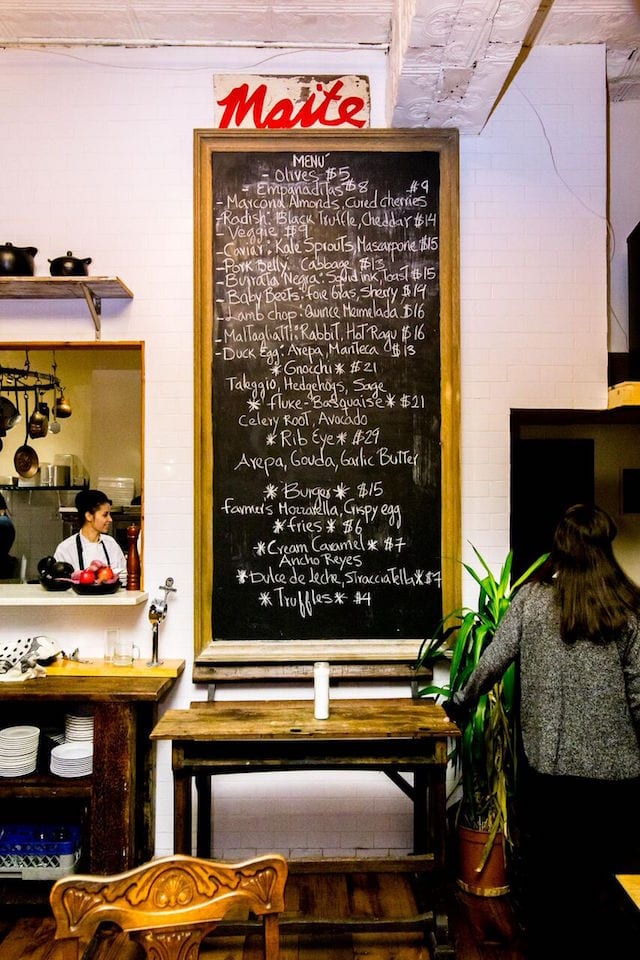 Maite
MENÚ
- Olives $5
- Empanaditas $8 $9
- Marcona Almonds, Cured cherries
- Radish: Black Truffle, Cheddar $14
Veggie $9
- Caviar: Kale Sprouts, Mascarpone $15
- Pork Belly: Cabbage $13
- Burrata Negra: Squid ink, Toast $15
- Baby Beets: Foie Gras, Sherry $19
- Lamb chop: Quince Mermelada $16
- Maltagliatti: Rabbit, Hot Ragu $16
- Duck Egg: Arepa, Manteca $13
* Gnocchi * $21
Taleggio, Hedgehogs, Sage
* Fluke-Basquaise * $21
Celery Root, Avocado
* Rib Eye * $29
Arepa, Gouda, Garlic Butter
* Burger * $15
Farmer's Mozzarella, Crispy egg
* fries * $6
* Cream Caramel * $7
Ancho Reyes
* Dulce de leche, Stracciatella * $7
* Truffles * $4